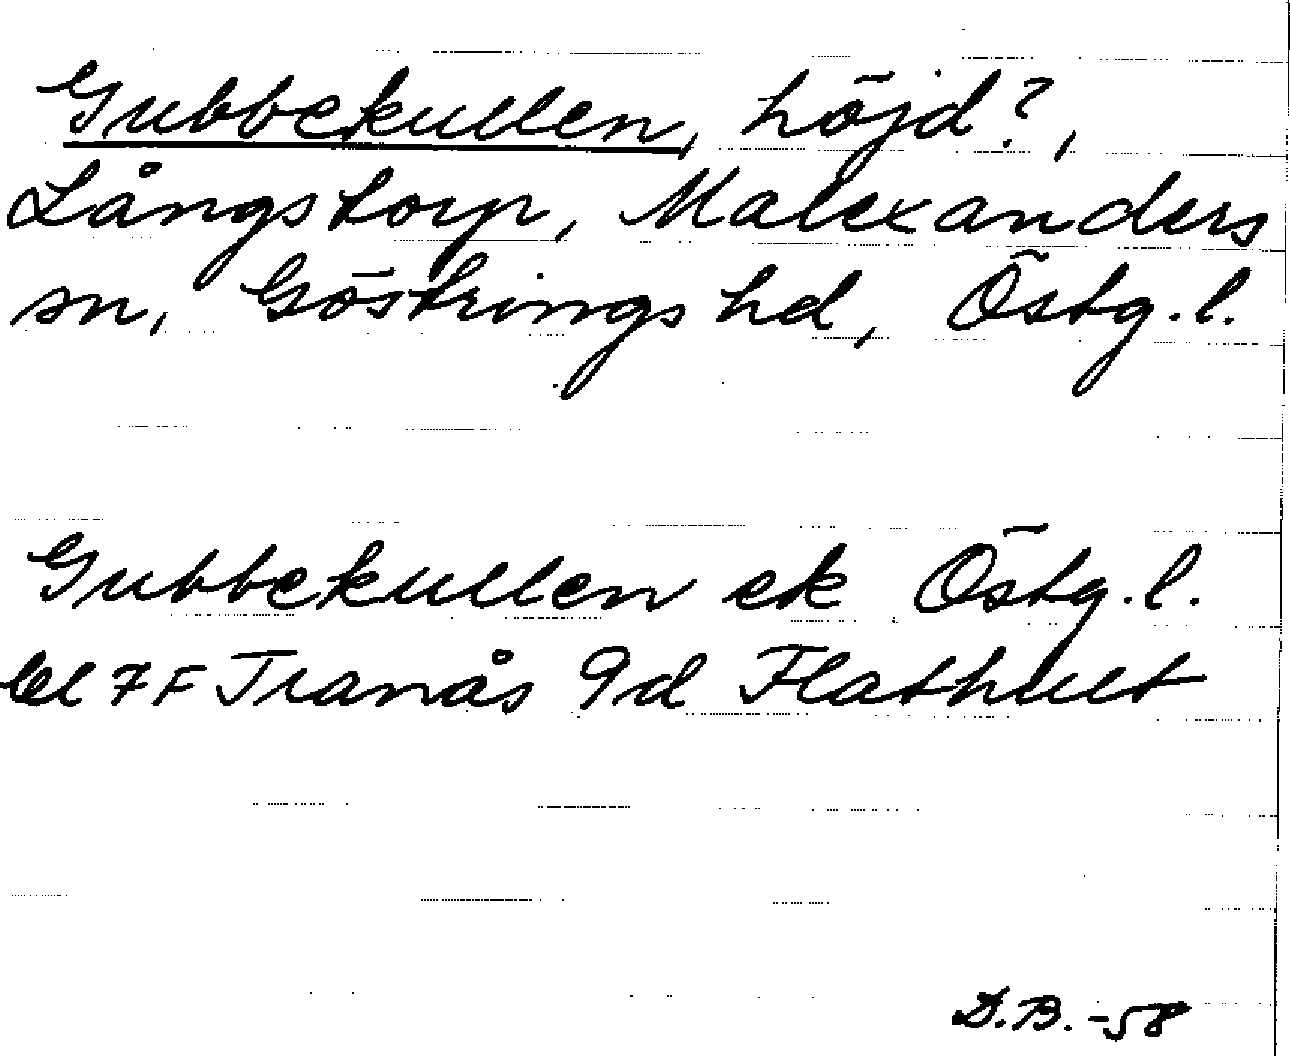 Gubbekullen, höjd?,
Långstorp, Malexanders
sn, Göstrings hd, Östg.l.
Gubbekullen ek Östg.l.
bl 7F Tranås 9d Flathult
D.B. -58